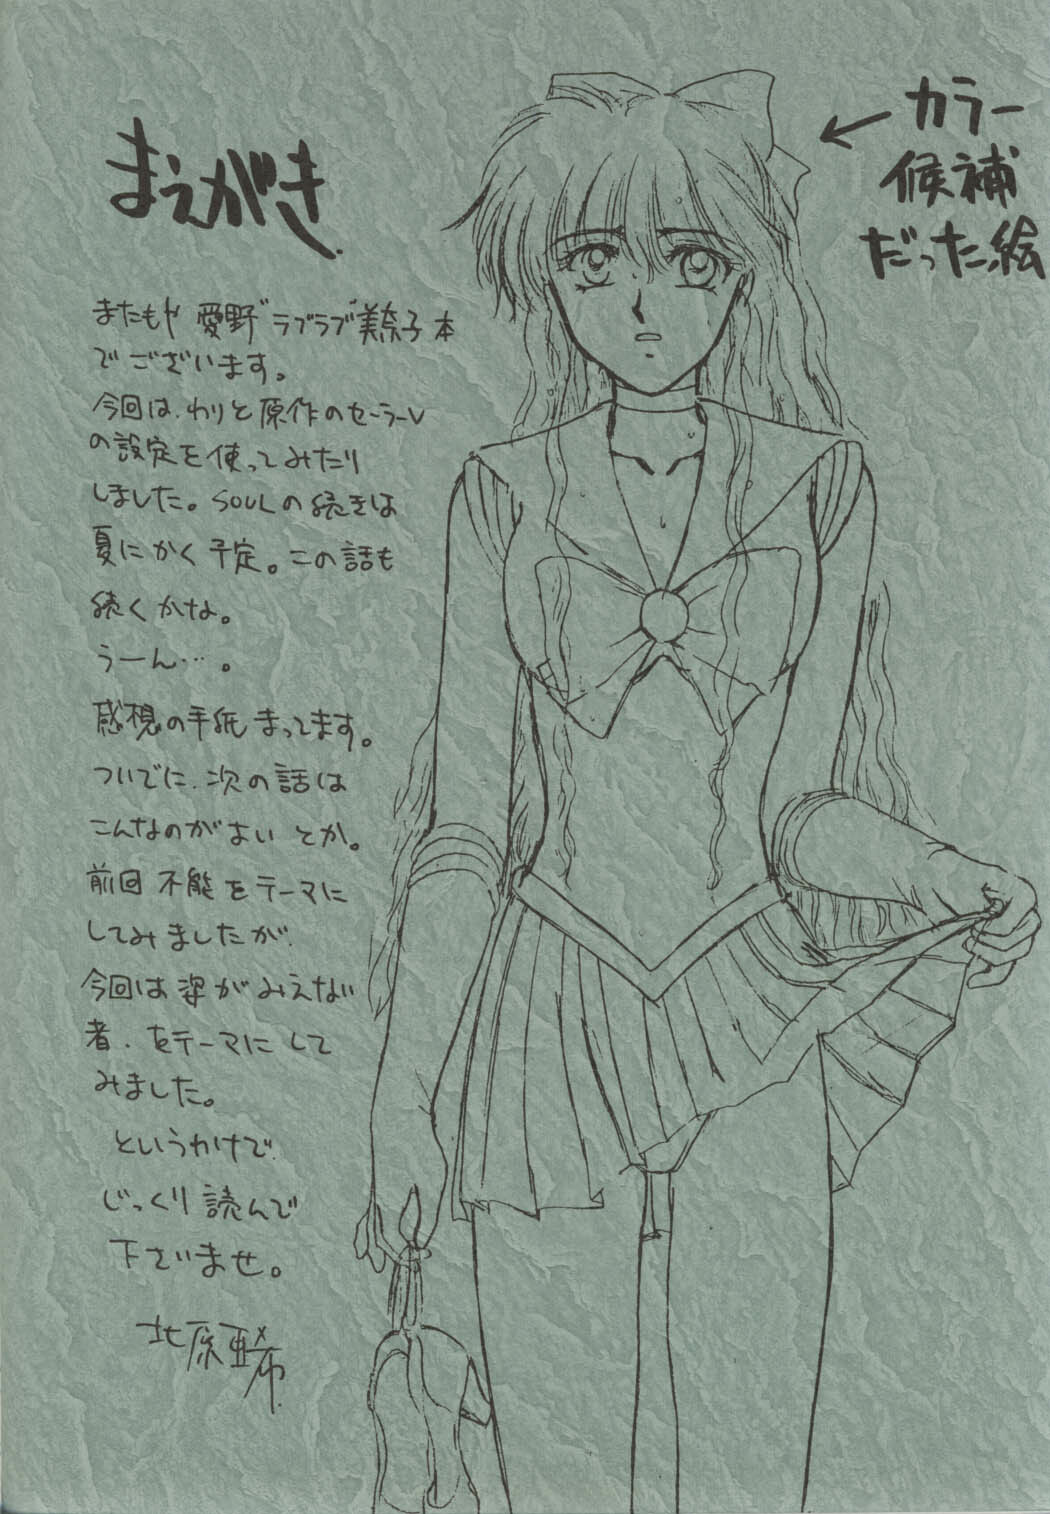 まえがき.
またもや 愛野"ラブラブ"美奈子本
でございます。
今回は、わりと原作のセーラーV
の設定を使ってみたり
しました。SOULの続きは
夏にかく予定。この話も
続くかな。
うーん…。
感想の手紙まってます。
ついでに、次の話は
こんなのがよいとか。
前回不能をテーマに
してみましたが、
今回は姿がみえない
者、をテーマにして
みました。
というわけで、
じっくり読んで
下さいませ。
北原亜希
←カラー
候補
だった絵